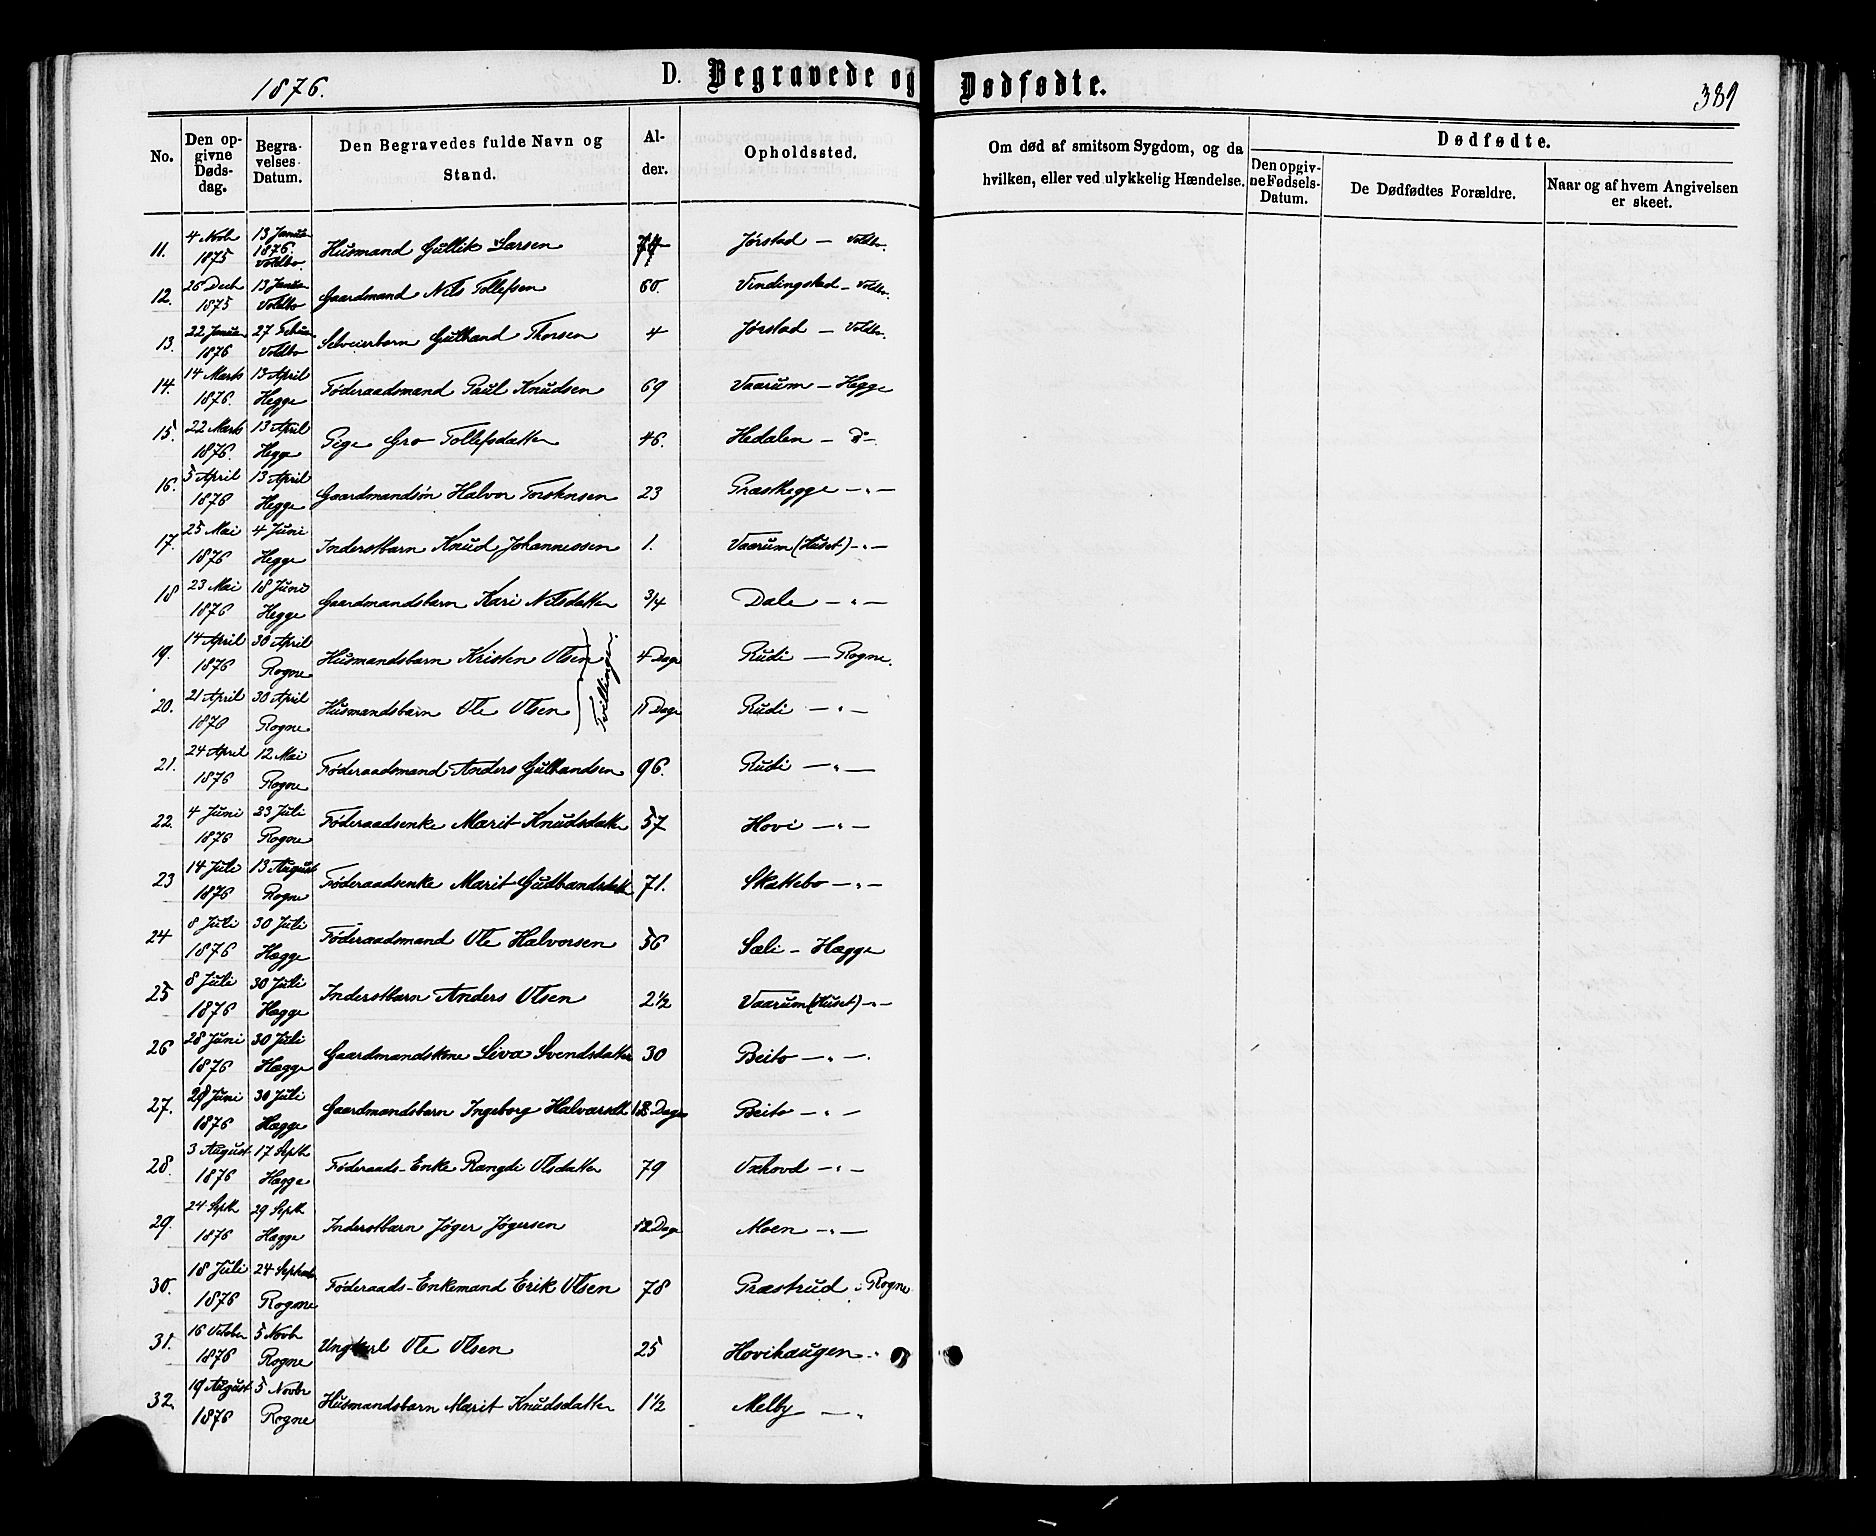 1876.
D. Begravede og Dødfødte.
381
No.
Den opgivne Dødsdag.
Begravelses Datum.
Den Begravedes fulde Navn og Stand.
Alder.
Opholdssted.
Om død af smitsom Sygdom, og da hvilken, eller ved ulykkelig Hændelse.
Dødfødte.
Den opgivne Fødsels-Datum.
De Dødfødtes Forældre.
Naar og af hvem Angivelsen er skeet.
11. 4 Novb 1875 13 Janua 1876. Voldbo. Husmand Gullik Larsen Jørstad — Voldbo.
12. 26 Decb 1875 13 Janua Voldbo Gaardmand Nils Tollefsen 60. Vindingstad — Voldbo.
13. 22 Janua 1876 27 Febua Voldbo Selveierbarn Gulbrand Thorsen 4 Jørstad — Voldbo.
14. 14 Marts 1876. 13 April Hegge Føderaadsmand Paul Knudsen 69 Vaarum — Hegge
15. 22 Marts 1876. 13 April Hegge Pige Gro Tollefsdatter 46. Hedalen — do
16. 5 April 1876 13 April Hegge Gaardmandsøn Halvor Torstensen 23 Præsthegge — " —
17. 25 Mai 1876 4 Juni Hegge Inderstbarn Knud Johannessen 1. Vaarum (Huset) — " —
18 23 Mai 1876 18 Juni Hegge Gaardmandsbarn Kari Nilsdatter 3/4 Dale — " —
19. 14 April 1876 30 April Rogne Husmandsbarn Kristen Olsen 4 Dage Rudi — Rogne.
Tvillinger.
20. 21 April 1876 30 April Rogne Husmandsbarn Ole Olsen 11 Dage Rudi — " —
21. 24 April 1876 12 Mai Rogne Føderaadsmand Anders Gulbrandsen 96. Rudi — " —
22. 4 Juni 1876 23 Juli Rogne Føderaadsenke Marit Knudsdatter 57 Hovi — " —
23 14 Juli 1876 13 August Rogne Føderaadsenke Marit Gudbrandsdatt 71. Skattebo — " —
24 8 Juli 1876 30 Juli Hægge Føderaadsmand Ole Halvorsen 56 Sæli — Hægge
25 8 Juli 1876 30 Juli Hægge Inderstbarn Anders Olsen 2 1/2 Vaarum (Huset) — " —
26 28 Juni 1876 30 Juli Hægge Gaardmandskone Siva Svendsdatter 30 Beito — " —
27. 29 Juni 1876 30 Juli Hægge Gaardmandsbarn Ingeborg Halvorsdt. Dage Beito — " —
28. 3 August 1876 17 Septb Hægge Føderaads-Enke Rangdi Olsdatter 79 Oxhovd — " —
29. 24 Septb 1876 29 Septb Hægge Inderstbarn Jøger Jøgersen 12 Dage Moen — " —
30. 18 Juli 1876 24 Septemb Rogne Føderaads-Enkemand Erik Olsen 78 Præstrud — Rogne
31. 16 October 1876 5 Novb Rogne Ungkarl Ole Olsen 25 Hovihaugen — "
32. 19 August 1876 5 Novbr Rogne Husmandsbarn Marit Knudsdatter 1 1/2 Melby — "